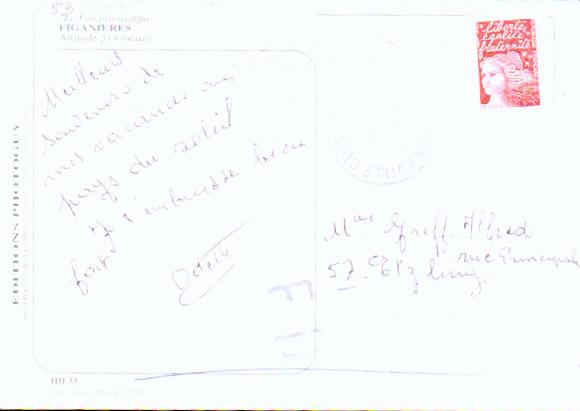 53
"Le Var pittoresque"
FIGANIÈRES
Altitude 314 mètres
Meilleurs
souvenirs de
mes vacances au
pays du soleil
Je t'embrasse bien
fort
Odette
liberté
égalité
fraternité
EDITIONS PHOTOGUY
Mme Greff Alfred
rue Principale
57
HH 33